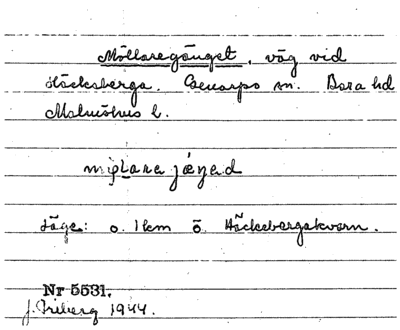 Möllaregånget, väg vid
Häckeberga. Genarps sn. Bara hd
Malmöhus l.
Läge: o. 1 km ö. Häckebergakvarn.
Nr 5531.
J. Friberg 1944.